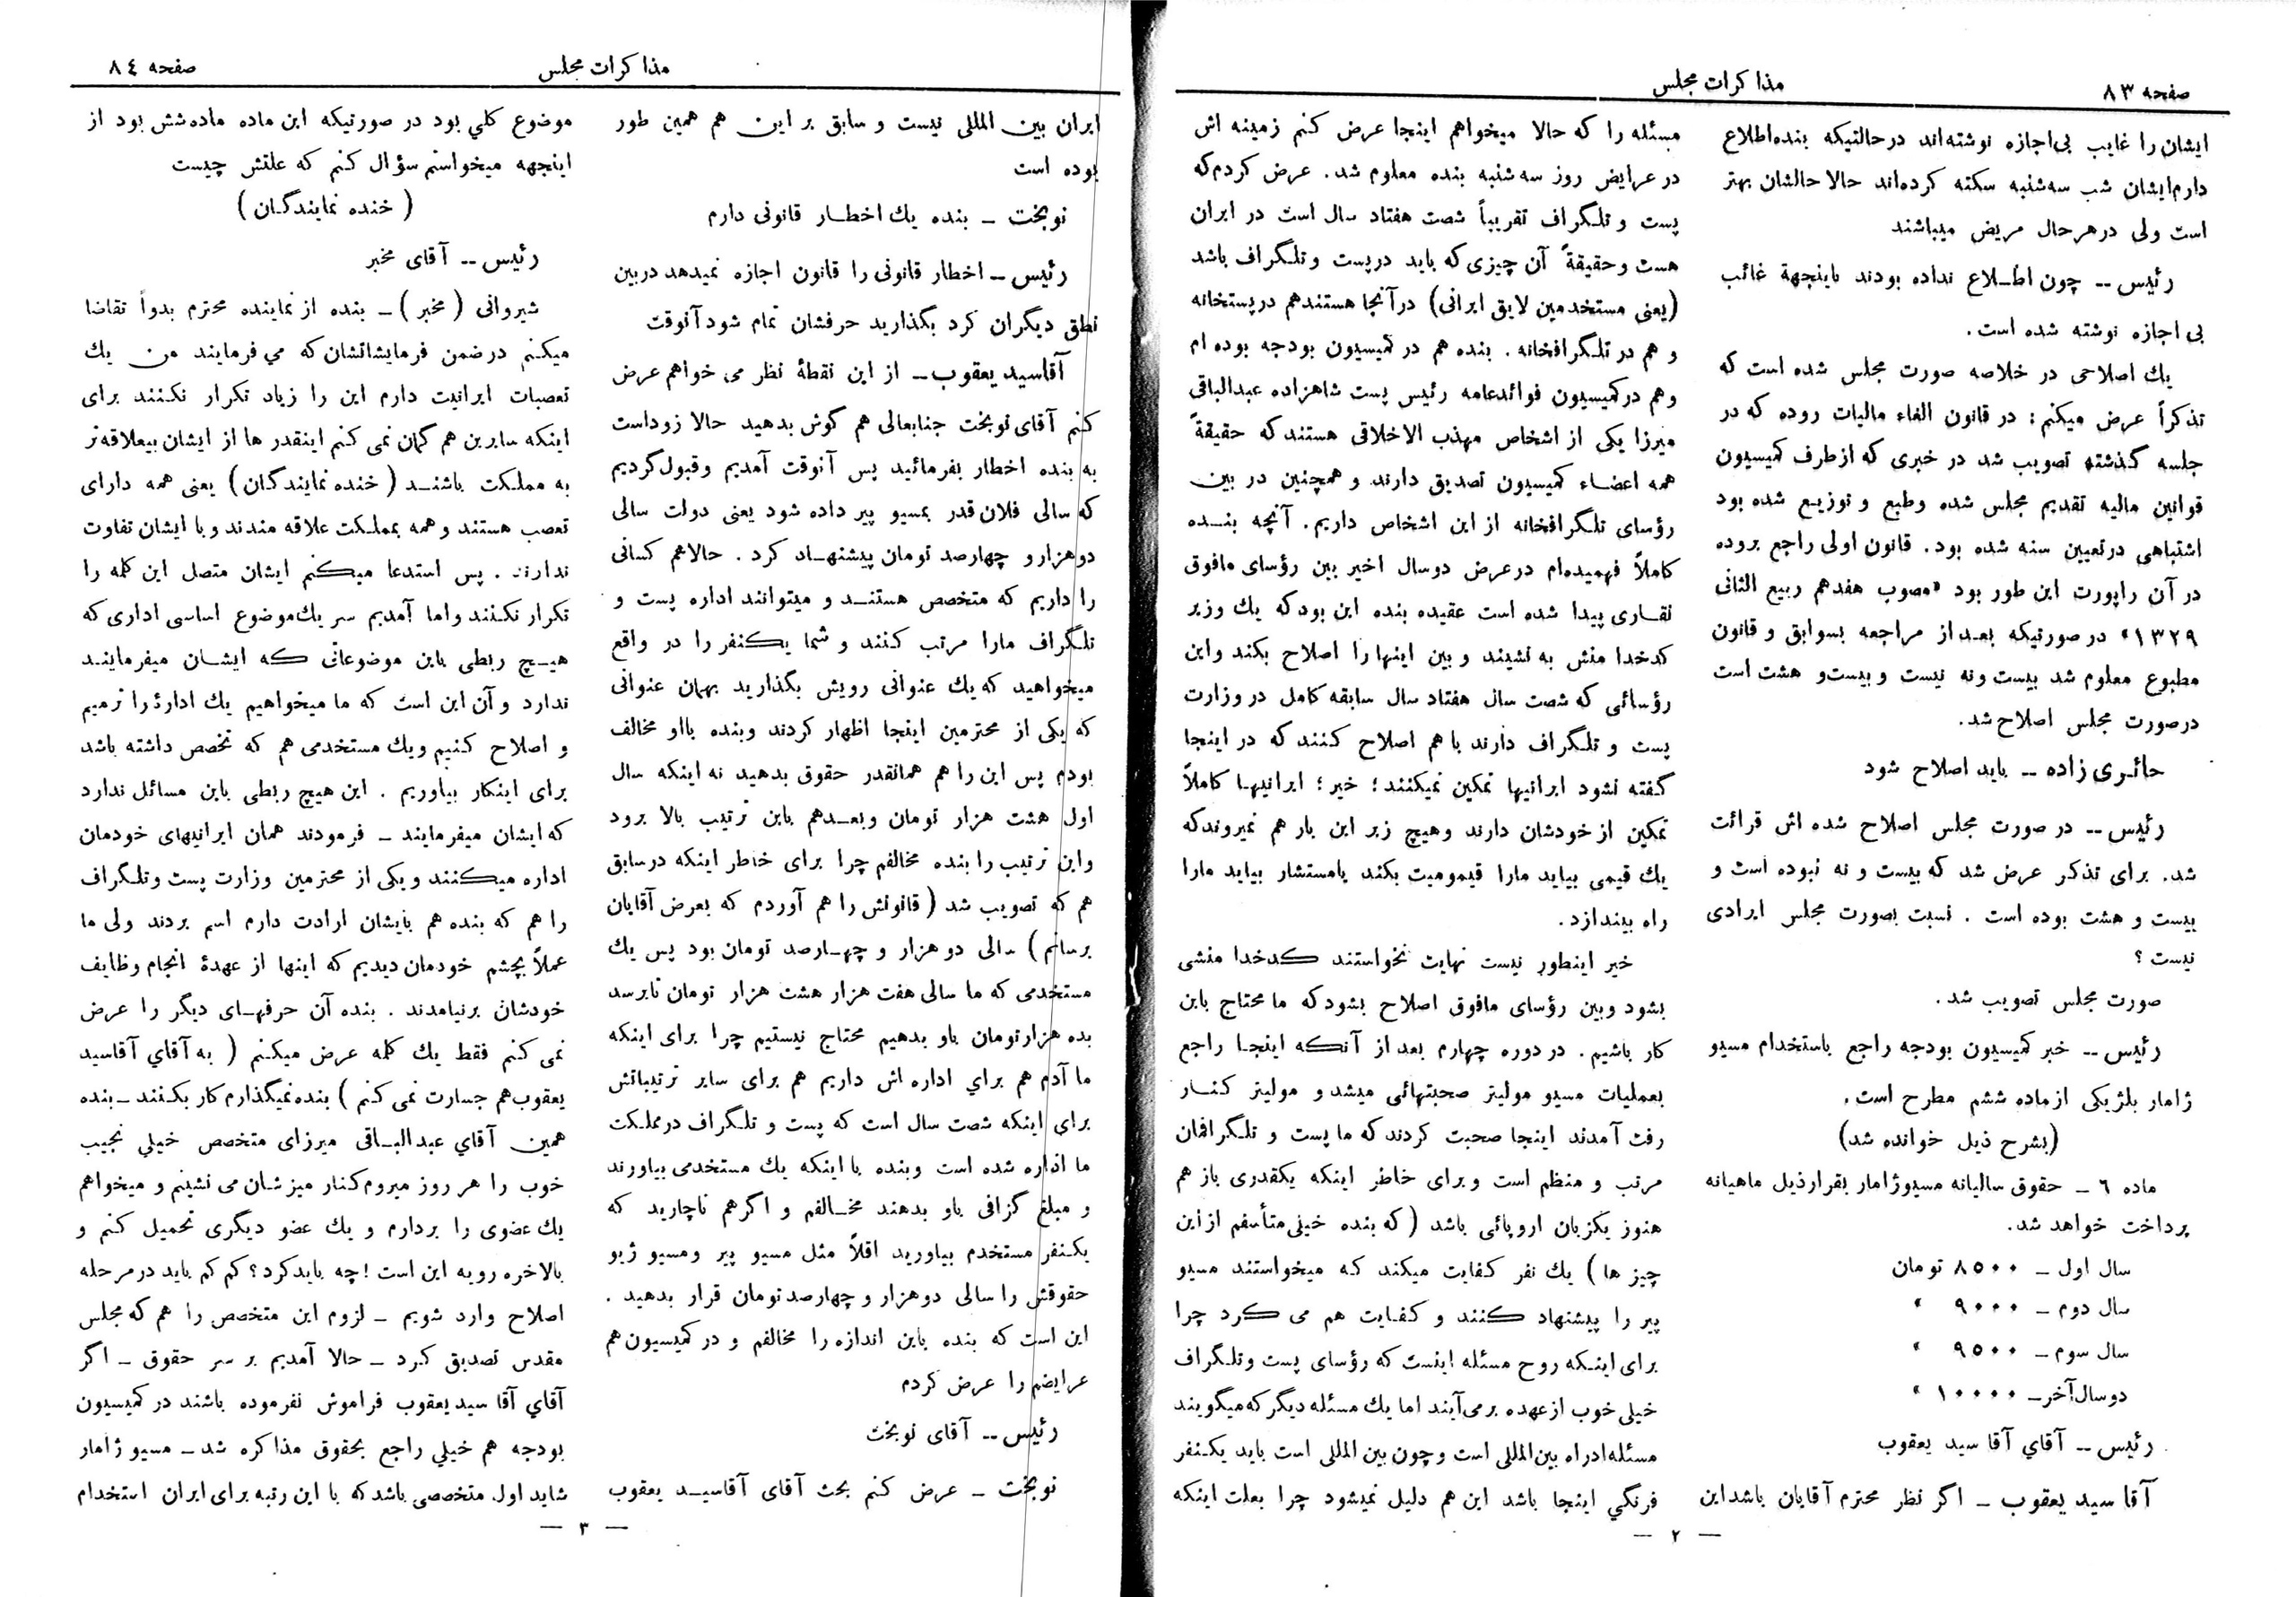 صفحه ۸۳
مذاکرات مجلس
ایشان را غایب بی‌اجازه نوشته‌اند درحالتیکه بنده‌اطلاع
دارم‌ایشان شب سه‌شنبه سکته کرده‌اند حالا حالشان بهتر
است ولی درهرحال مریض میباشند
رئیس -- چون اطلاع نداده بودند باینجهة غائب
بی اجازه نوشته شده است.
یك اصلاحی در خلاصه صورت مجلس شده است که
تذکراً عرض میکنم: در قانون الغاء مالیات روده که در
جلسه گذشته تصویب شد در خبری که ازطرف کمیسیون
قوانین مالیه تقدیم مجلس شده وطبع و توزیع شده بود
اشتباهی درتعیین سنه شده بود. قانون اولی راجع بروده
در آن راپورت این طور بود «مصوب هفدهم ربیع الثانی
۱۳۲۹» در صورتیکه بعد از مراجعه بسوابق و قانون
مطبوع معلوم شد بیست ونه نیست و بیست‌و هشت است
درصورت مجلس اصلاح شد.
حائری زاده -- باید اصلاح شود
رئیس -- در صورت مجلس اصلاح شده اش قرائت
شد. برای تذکر عرض شد که بیست و نه نبوده است و
بیست و هشت بوده است . نسبت بصورت مجلس ایرادی
نیست ؟
صورت مجلس تصویب شد.
رئیس -- خبر کمیسیون بودجه راجع باستخدام مسیو
ژامار بلژیکی ازماده ششم مطرح است.
(بشرح ذیل خوانده شد)
ماده ٦ ـ حقوق سالیانه مسیوژامار بقرارذیل ماهیانه
پرداخت خواهد شد.
سال اول ـ ۸۵۰۰ تومان
سال دوم ـ ۹۰۰۰ »
سال سوم ـ ۹۵۰۰ »
دوسال‌آخرـ ۱۰۰۰۰ »
رئیس -- آقاي آقا سید یعقوب
آقا سید یعقوب ـ اگر نظر محترم آقایان باشداین
مسئله را که حالا میخواهم اینجا عرض کنم زمینه اش
درعرایض روز سه شنبه بنده معلوم شد. عرض کردم‌که
پست و تلگراف تقریباً شصت هفتاد سال است در ایران
هست وحقیقةً آن چیزی‌که باید درپست وتلگراف باشد
(یعنی مستخدمین لایق ایرانی) درآنجا هستندهم درپستخانه
و هم در تلگرافخانه. بنده هم در کمیسیون بودجه بوده ام
وهم درکمیسیون فوائدعامه رئیس پست شاهزاده عبدالباقی
میرزا یکی از اشخاص مهذب الاخلاقی هستندکه حقیقةً
همه اعضاء کمیسیون تصدیق دارند و همچنین در بین
رؤسای تلگرافخانه از این اشخاص داریم. آنچه بنده
کاملاً فهمیده‌ام درعرض دوسال اخیر بین رؤسای مافوق
نقاری پیدا شده است عقیده بنده این بودکه یك وزیر
کدخدا منش به نشیند و بین اینهارا اصلاح بکند واین
رؤسائی که شصت سال هفتاد سال سابقه کامل در وزارت
پست و تلگراف دارند باهم اصلاح کنند که در اینجا
گفته نشود ایرانیها تمکین نمیکنند؛ خیر؛ ایرانیها کاملاً
تمکین از خودشان دارند وهیچ زیر این بار هم نمیروندکه
یك قیمی بیاید مارا قیمومیت بکند یامستشار بیاید مارا
راه بیندازد.
خیر اینطور نیست نهایت نخواستند کدخدا منشی
بشود وبین رؤسای مافوق اصلاح بشودکه ما محتاج باین
کار باشیم. در دوره چهارم بعد از آنکه اینجا راجع
بعملیات مسیو مولیتر صحبتهائی میشد و مولیتر کنار
رفت آمدند اینجا صحبت کردند که ما پست و تلگرافان
مرتب و منظم است وبرای خاطر اینکه یکقدری باز هم
هنوز یکزبان اروپائی باشد (که بنده خیلی‌متأسفم ازاین
چیز ها) یك نفر کفایت میکند که میخواستند مسیو
پیر را پیشنهاد کنند و کفایت هم می کرد چرا
برای اینکه روح مسئله اینست که رؤسای پست وتلگراف
خیلی خوب ازعهده برمی‌آیند اما یك مسئله دیگر که میگویند
مسئله‌ادراه بین‌المللی است وچون بین المللی است باید یکنفر
فرنگي اینجا باشد این هم دلیل نمیشود چرا بعلت اینکه
— ۲ —
مذاکرات مجلس
صفحه ۸٤
ایران بین المللی نیست و سابق بر این هم همین طور
بوده است
نوبخت ـ بنده یك اخطار قانونی دارم
رئیس ـ اخطار قانونی را قانون اجازه نمیدهد دربین
نطق دیگران کرد بگذارید حرفشان تمام شود آنوقت
آقاسید یعقوب ـ از این نقطهٔ نظر می خواهم عرض
کنم آقای نوبخت جنابعالی هم گوش بدهید حالا زوداست
به بنده اخطار بفرمائید پس آنوقت آمدیم وقبول‌کردیم
که سالی فلان قدر بمسیو پیر داده شود یعنی دولت سالی
دوهزارو چهارصد تومان پیشنهاد کرد . حالاهم کسانی
را داریم که متخصص هستند و میتوانند اداره پست و
تلگراف مارا مرتب کنند و شما یکنفر را در واقع
میخواهید که یك عنوانی رویش بگذارید بهمان عنوانی
که یکی از محترمین اینجا اظهار کردند وبنده بااو مخالف
بودم پس این را هم همانقدر حقوق بدهید نه اینکه سال
اول هشت هزار تومان وبعدهم باین ترتیب بالا برود
واین ترتیب را بنده مخالفم چرا برای خاطر اینکه درسابق
هم که تصویب شد (قانونش را هم آوردم که بعرض آقایان
برسانم) سالی دو هزار و چهارصد تومان بود پس یك
مستخدمی که ما سالی هفت هزار هشت هزار تومان تابرسد
بده هزارتومان باو بدهیم محتاج نیستیم چرا برای اینکه
ما آدم هم براي اداره اش داریم هم برای سایر ترتیباتش
برای اینکه شصت سال است که پست و تلگراف درمملکت
ما اداره شده است وبنده با اینکه یك مستخدمی بیاورند
و مبلغ گزافی باو بدهند مخالفم و اگرهم ناچارید که
یکنفر مستخدم بیاورید اقلاً مثل مسیو پیر ومسیو ژیو
حقوقش را سالی دوهزار و چهارصدتومان قرار بدهید .
این است که بنده باین اندازه را مخالفم و در کمیسیون هم
عرایضم را عرض کردم
رئیس -- آقای نوبخت
نوبخت ـ عرض کنم بحث آقای آقاسید یعقوب
موضوع کلي بود در صورتیکه این ماده ماده‌شش بود از
اینجهه میخواستم سؤال کنم که علتش چیست
(خنده نمایندگان)
رئیس -- آقای مخبر
شیروانی (مخبر) ـ بنده از نماینده محترم بدواً تقاضا
میکنم درضمن فرمایشاتشان که مي فرمایند من یك
تعصبات ایرانیت دارم این را زیاد تکرار نکنند برای
اینکه سایرین هم گمان نمی کنم اینقدر ها از ایشان بیعلاقه‌تر
به مملکت باشند (خنده نمایندگان) یعنی همه دارای
تعصب هستند وهمه بمملکت علاقه مندند وبا ایشان تفاوت
ندارند . پس استدعا میکنم ایشان متصل این کلمه را
تکرار نکنند واما آمدیم سر یك‌موضوع اساسی اداری که
هیچ ربطی باین موضوعاتی که ایشان میفرمایند
ندارد و آن این است که ما میخواهیم یك ادارهٔ را ترمیم
و اصلاح کنیم ویك مستخدمی هم که تخصص داشته باشد
برای اینکار بیاوریم . این هیچ ربطی باین مسائل ندارد
که ایشان میفرمایند ـ فرمودند همان ایرانیهای خودمان
اداره میکنند ویکی از محترمین وزارت پست وتلگراف
را هم که بنده هم بایشان ارادت دارم اسم بردند ولی ما
عملاً بچشم خودمان دیدیم که اینها از عهدهٔ انجام وظایف
خودشان برنیامدند . بنده آن حرفهای دیگر را عرض
نمی کنم فقط یك کلمه عرض میکنم (به آقاي آقاسید
یعقوب هم جسارت نمی کنم) بنده نمیگذارم کار بکنند ـ بنده
همین آقاي عبدالباقی میرزای متخصص خیلي نجیب
خوب را هر روز میروم کنار میز شان می نشینم و میخواهم
یك عضوی را بردارم و یك عضو دیگری تحمیل کنم و
بالاخره رویه این است! چه بایدکرد؟ کم کم باید درمرحله
اصلاح وارد شویم ـ لزوم این متخصص را هم که مجلس
مقدس تصدیق کرد ـ حالا آمدیم بر سر حقوق ـ اگر
آقاي آقا سید یعقوب فراموش نفرموده باشند در کمیسیون
بودجه هم خیلي راجع بحقوق مذاکره شد ـ مسیو ژامار
شاید اول متخصصی باشد که با این رتبه برای ایران استخدام
— ۳ —